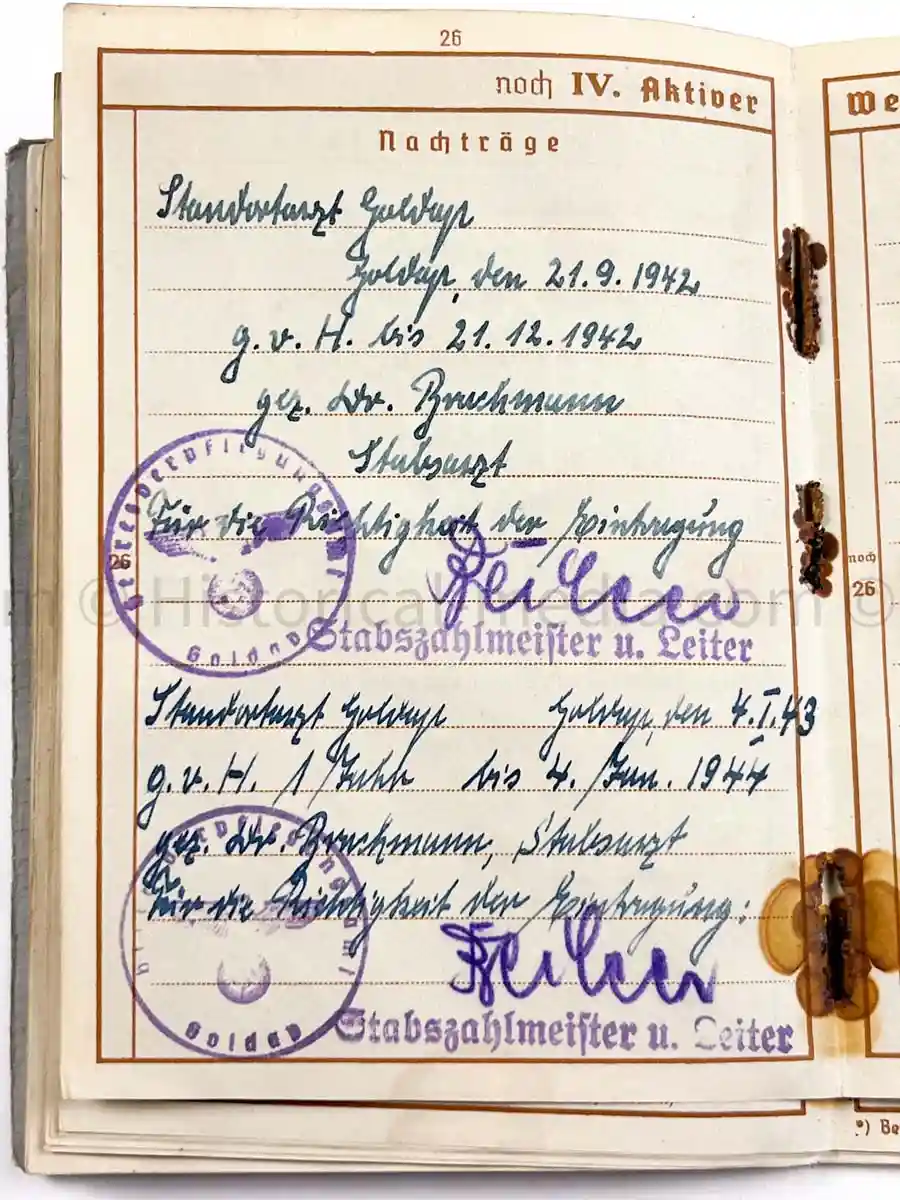 26
noch IV. Aktiver
We
Nachträge
Standortarzt Goldap
Goldap, den 21.9.1942
g.v.H. bis 21.12.1942
gez. Dr. Brachmann
Stabsarzt
Heeresverpflegungsamt
Goldap
Für die Richtigkeit der Eintragung
26
noch
26
Stabszahlmeister u. Leiter
m © Historical-media.com ©
Standortarzt Goldap Goldap, den 4.I.43
g.v.H. 1 Jahr bis 4. Jan. 1944
gez. Dr. Brachmann, Stabsarzt
Für die Richtigkeit der Eintragung:
Heeresverpflegungsamt
Goldap
Stabszahlmeister u. Leiter
*) Be